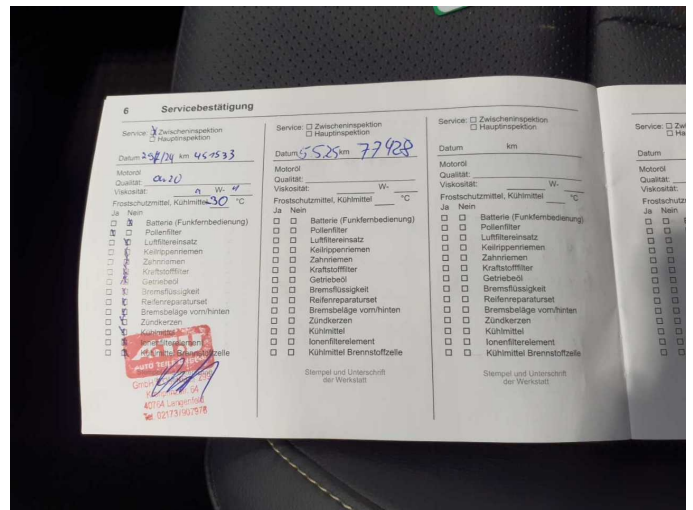 6 Servicebestätigung
Service: ☒ Zwischeninspektion
☐ Hauptinspektion
Datum km
Motoröl
Qualität:
Viskosität: W-
Frostschutzmittel, Kühlmittel -30 °C
Ja Nein
Batterie (Funkfernbedienung)
Pollenfilter
Luftfiltereinsatz
Keilrippenriemen
Zahnriemen
Kraftstofffilter
Getriebeöl
Bremsflüssigkeit
Reifenreparaturset
Bremsbeläge vorn/hinten
Zündkerzen
Kühlmittel
Ionenfilterelement
Kühlmittel Brennstoffzelle
GmbH
40764 Langenfeld
Tel. 02173/907978
Service: ☐ Zwischeninspektion
☐ Hauptinspektion
Datum 5.5.25 km 77428
Motoröl
Qualität:
Viskosität: W-
Frostschutzmittel, Kühlmittel °C
Ja Nein
☐ ☐ Batterie (Funkfernbedienung)
☐ ☐ Pollenfilter
☐ ☐ Luftfiltereinsatz
☐ ☐ Keilrippenriemen
☐ ☐ Zahnriemen
☐ ☐ Kraftstofffilter
☐ ☐ Getriebeöl
☐ ☐ Bremsflüssigkeit
☐ ☐ Reifenreparaturset
☐ ☐ Bremsbeläge vorn/hinten
☐ ☐ Zündkerzen
☐ ☐ Kühlmittel
☐ ☐ Ionenfilterelement
☐ ☐ Kühlmittel Brennstoffzelle
Stempel und Unterschrift
der Werkstatt
Service: ☐ Zwischeninspektion
☐ Hauptinspektion
Datum km
Motoröl
Qualität:
Viskosität: W-
Frostschutzmittel, Kühlmittel °C
Ja Nein
☐ ☐ Batterie (Funkfernbedienung)
☐ ☐ Pollenfilter
☐ ☐ Luftfiltereinsatz
☐ ☐ Keilrippenriemen
☐ ☐ Zahnriemen
☐ ☐ Kraftstofffilter
☐ ☐ Getriebeöl
☐ ☐ Bremsflüssigkeit
☐ ☐ Reifenreparaturset
☐ ☐ Bremsbeläge vorn/hinten
☐ ☐ Zündkerzen
☐ ☐ Kühlmittel
☐ ☐ Ionenfilterelement
☐ ☐ Kühlmittel Brennstoffzelle
Stempel und Unterschrift
der Werkstatt
Service: ☐
☐
Datum
Motoröl
Qualität:
Viskosität:
Ja Nein